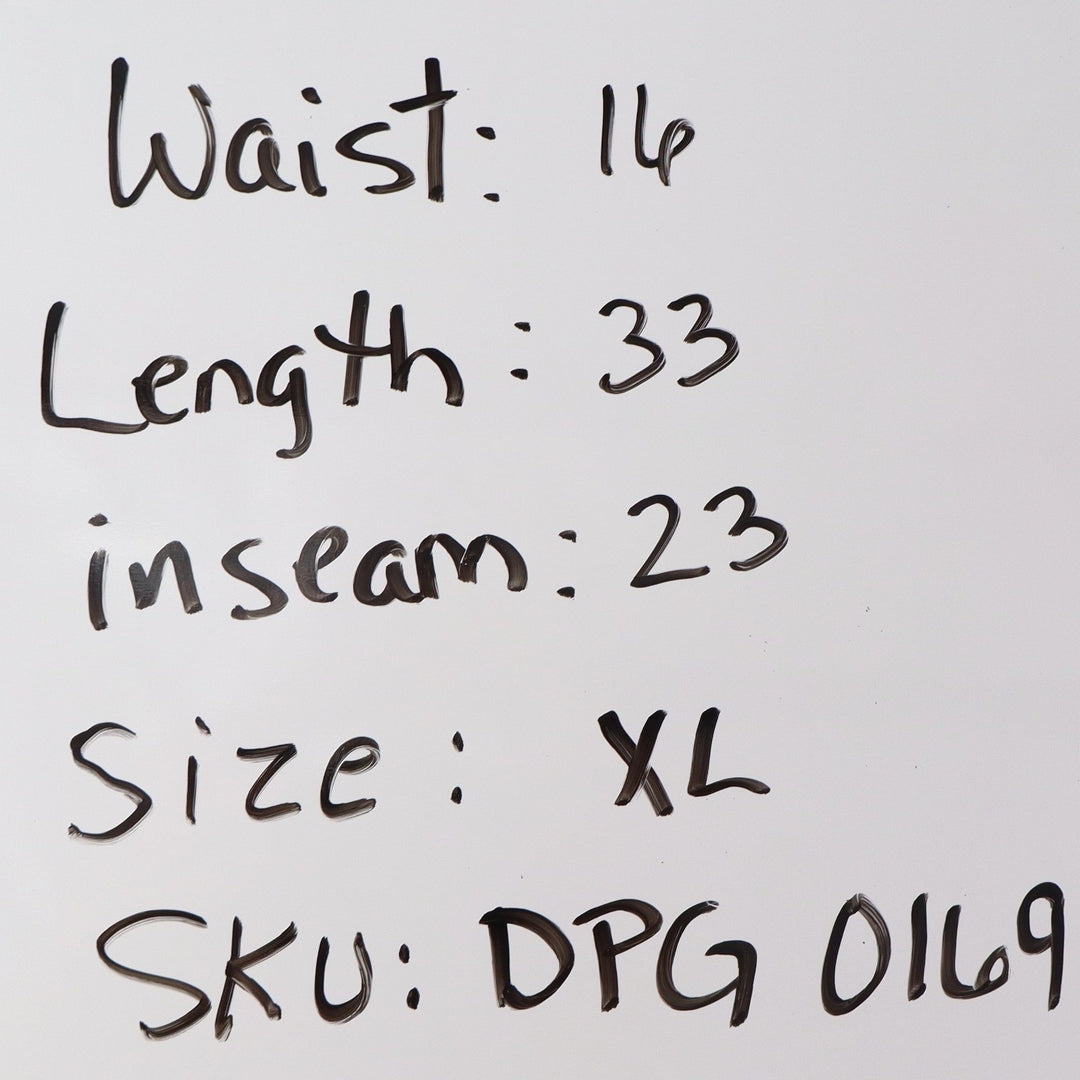 Waist: 16
Length: 33
inseam: 23
Size: XL
SKU: DPG 0169